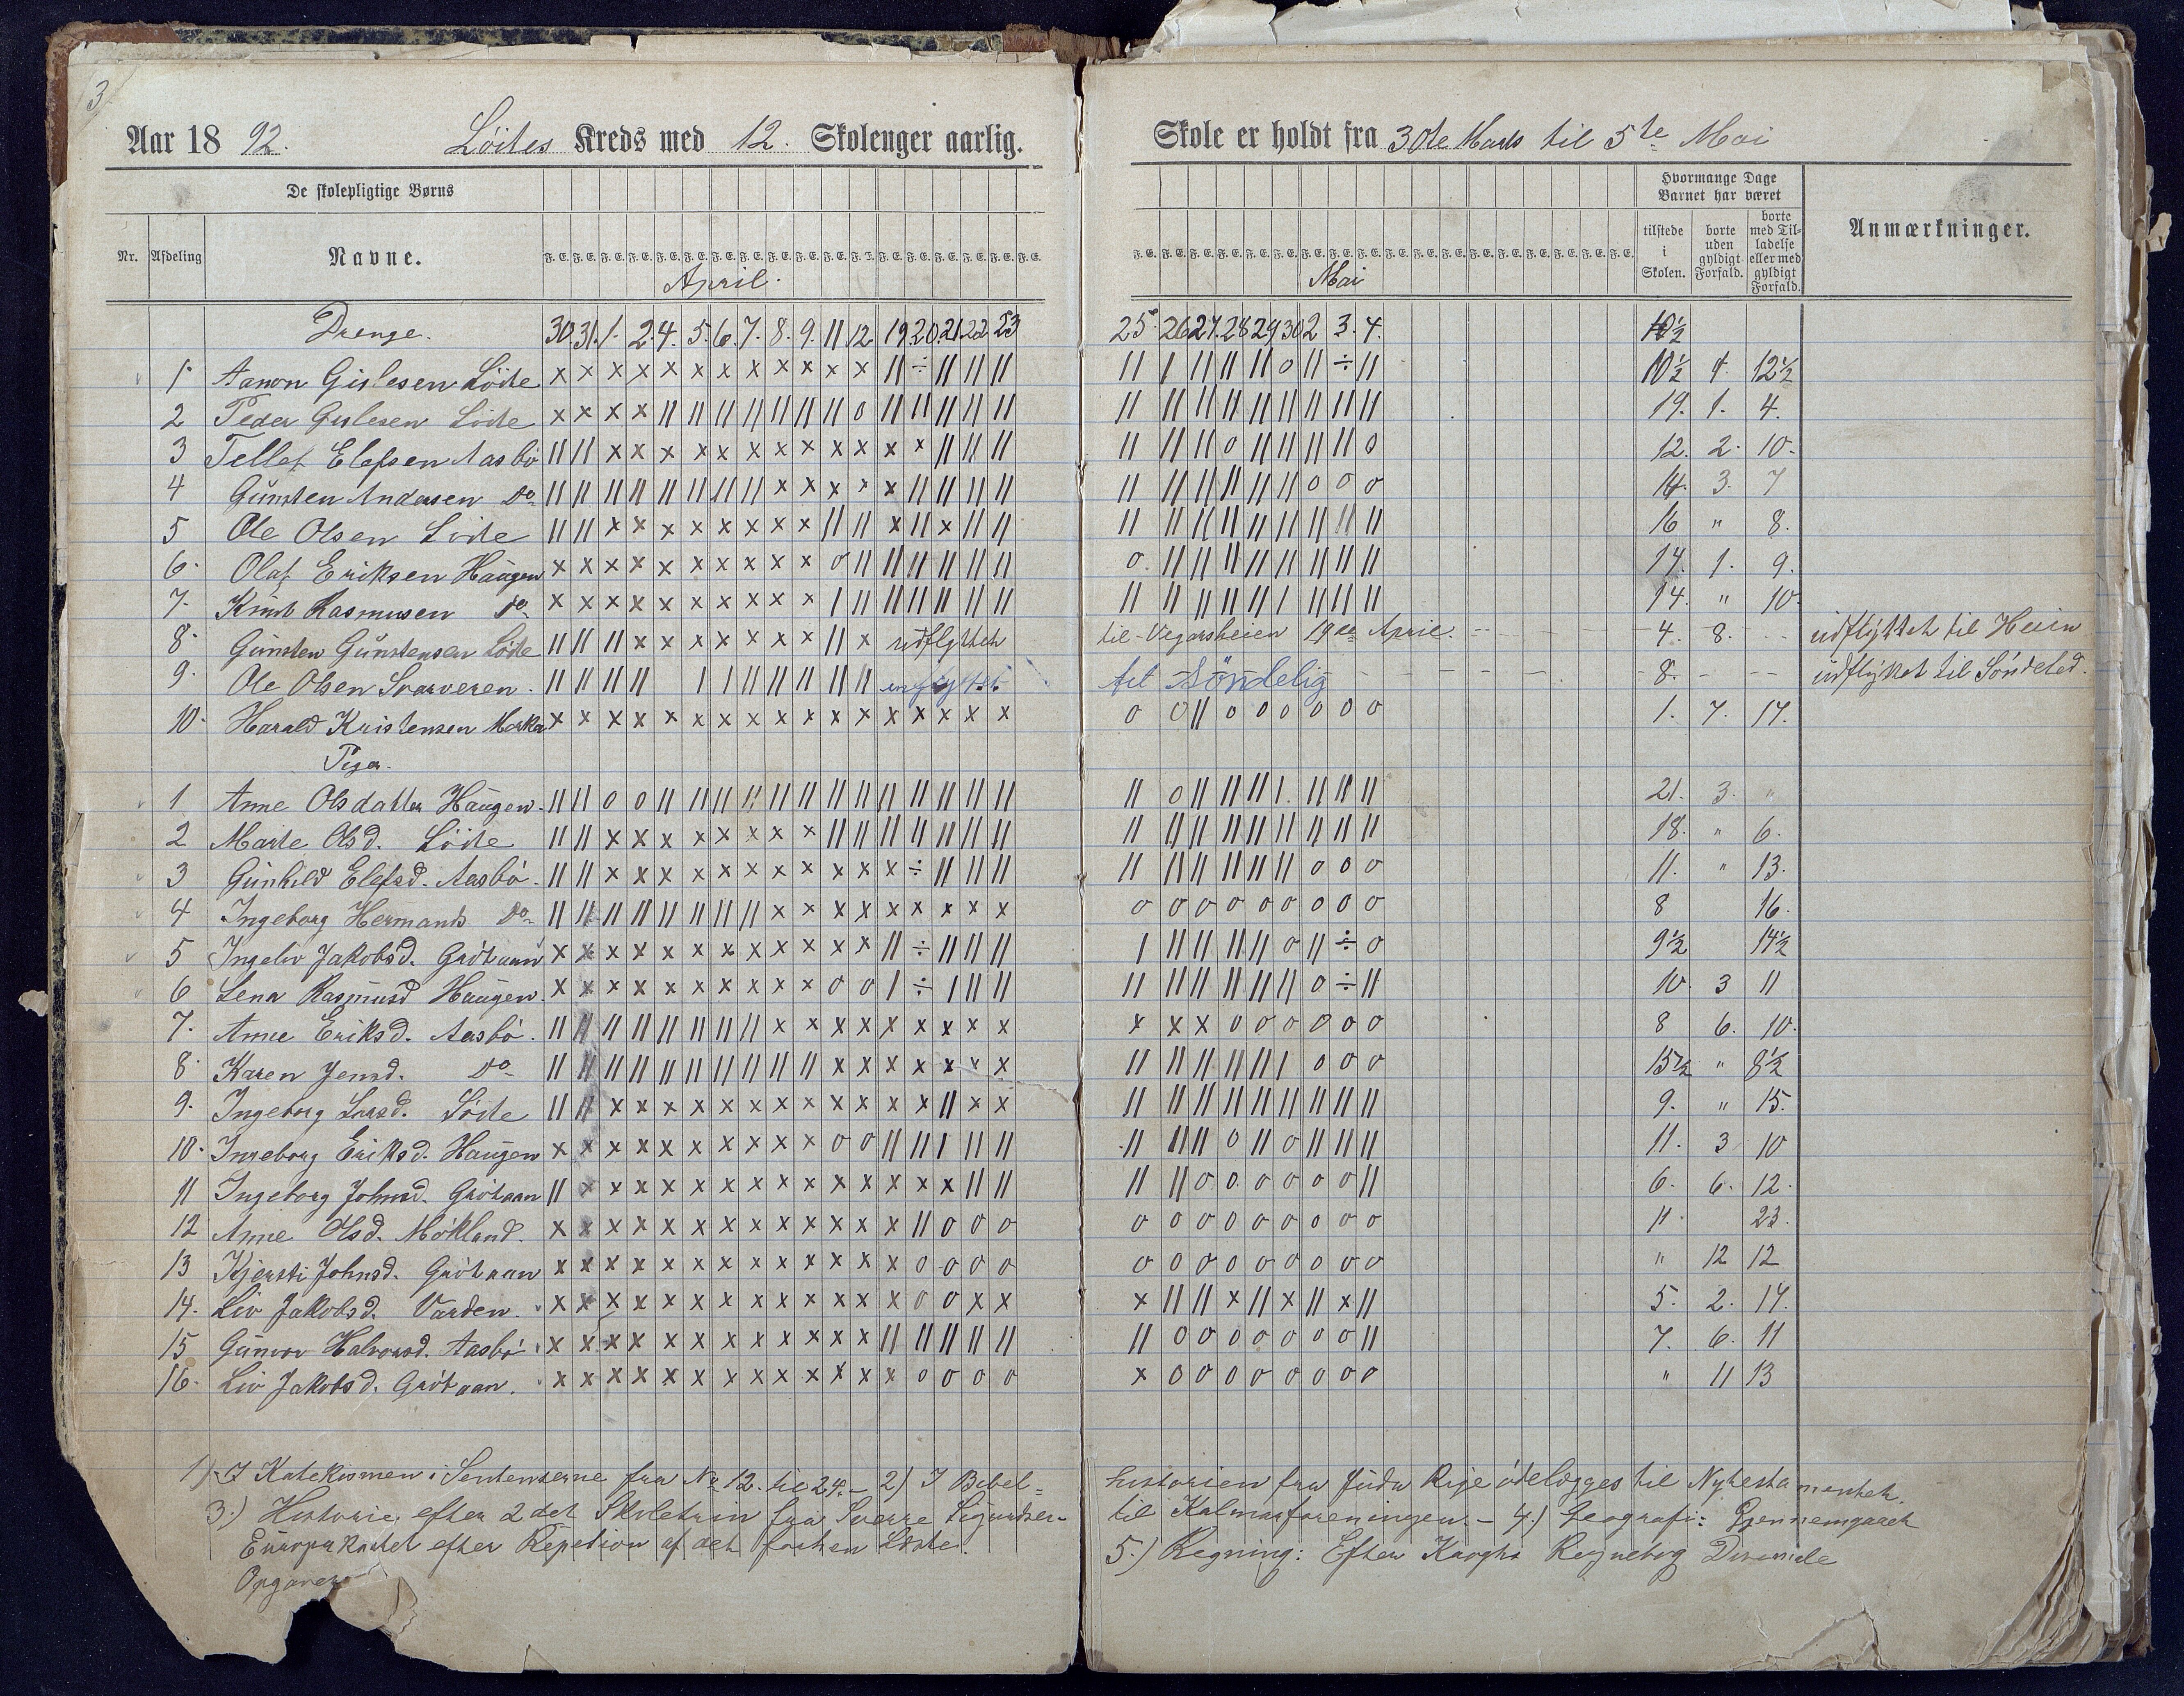 3
Aar 18 92. Löites Kreds med 12. Skolenger aarlig. Skole er holdt fra 30te Marts til 5te Mai
De skolepligtige Børns
Hvormange Dage Barnet har været
Nr. Afdeling Navne.
tilstede i Skolen. borte uden gyldigt Forfald. borte med Tilladelse eller med gyldigt Forfald. Anmærkninger.
April. Mai
Drenge. 30. 31. 1. 2. 4. 5. 6. 7. 8. 9. 11 12 19. 20. 21. 22 23 25. 26 27. 28 29 30 2 3. 4. 10½
1. Aanon Gislesen Löite x x x x x x x x x x x x || ÷ || || || || | || || || o || ÷ || 10½ 1. 12½
2 Peder Gislesen Löite x x x x || || || || || || || o || || || || || || || || || || || || || || 19. 1. 4.
3 Tellef Elefsen Aasbö || || x x x x x x x x x x x x || || || || || || o || || || || o 12. 2. 10.
4 Gunsten Andersen Do || || || || || || || || x x x x x || || || || || || || || || || o o o 14. 3. 7
5 Ole Olsen Löite || || x x x x x x x x || || x || x || || || || || || || || || || || 16 " 8.
6. Olaf Eriksen Haugen x x x x x x x x x x o || || || || || || o. || || || || || || || || 14. 1. 9.
7. Knut Rasmusen Do x x x x x x x x x x | || || || || || || || || || || || | || || || 14. " 10.
8. Gunsten Gunstensen Löite || || || x x x x x x x || x udflyttet til Vegarsheien 19de April. 4. 8. udflyttet til Heien
9. Ole Olsen Svarveren. || || || || | | || || || || || udflyttet til Söndelig 8. udflyttet til Söndeled.
10. Harald Kristensen x x x x x x x x x x x x x x x x x o o || o o o o o o 1. 7. 17.
Piger.
1 Anne Olsdatter Haugen. || || o o || || || || || || || || || || || || || || o || || || |. || || || 21. 3. "
2 Marte Olsd. Löite || || x x x x x x x x || || || || || || || || || || || || || || || || 18. " 6.
3 Gunhild Elefsd. Aasbö. || || x x x x x x x x x x x ÷ || || || || || || || || || o o o 11. " 13.
4 Ingeborg Hermands Do || || || || || || || || x x x x x x x x x o o o o o o o o o 8 16.
5 Ingeliv Jakobsd. Grötaan x x x x x x x x x x x x || ÷ || || || | || || || || o || ÷ o 9½ 14½
6 Lena Rasmusd Haugen. x x x x x x x x x x o o | ÷ | || || || || || || || || o ÷ || 10. 3 11
7. Anne Eriksd. Aasbö. || || || || || || || || x x x x x x x x x x x x o o o o o o 8 6. 10.
8. Karen Jensd. Do || || || || || || || || || || x x x x x x x || || || || || | o o o 15½ " 8½
9. Ingeborg Larsd. Löite || || x x x x x x x x x x x x || x x || || || || || || || || || 9. " 15.
10. Ingeborg Eriksd. Haugen x x x x x x x x x x o o || || | || || || || || o || o || || || 11. 3 10
11 Ingeborg Johnsd. Grötaan || x x x x x x x x x x x x x x || || || || o o. o o o o || 6. 6. 12.
12 Anne Olsd. Mökland. x x x x x x x x x x x x x || o o o o o o o o o o o o 11. 23.
13 Kjersti Johnsd. Grötaan x x x x x x x x x x x x x o o o o o o o o o o o o o " 12 12
14. Liv Jakobsd. Varden. x x x x x x x x x x x x x o o x x x || || x || x || x || 5. 2. 17.
15 Gunvor Halvorsd. Aasbö x x x x x x x x x x x x || || || || || || o o o o o o o || 7. 6. 11
16. Liv Jakobsd. Grötaan. x x x x x x x x x x x x x o o o o x o o o o o o o o " 11 13
1) I Katekismen i Sentenserne fra No 12. til 24. – 2) I Bibel=
historien fra Juda Rige ödelægges til Nytestamentet.
3.) Historie, efter 2det Skoletrin fra Sverre Sigurdsen
til Kalmarforeningen. – 4.) Geografi: Gjennemgaaet
Europakartet efter Repetion af det forhen Læste.
5.) Regning: Efter Kroghs Regnebog
Opgaver